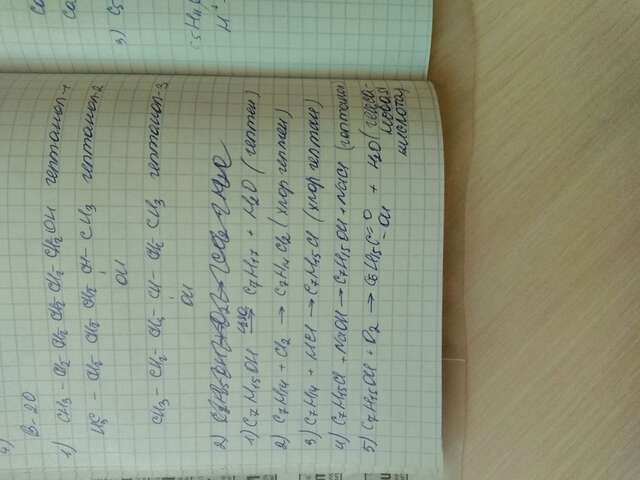 В-20
1) CH3 - CH2 CH2 CH2 CH2 - CH2OH гептанол-1
H3C - CH2 CH2 CH2 CH - CH3 гептанол-2
OH
CH3 - CH2 - CH2 - CH - CH2 CH3 гептанол-3
OH
2)
1) C7H15OH → C7H14 + H2O (гептен)
2) C7H14 + Cl2 → C7H14Cl2 (хлор гептен)
3) C7H14 + HCl → C7H15Cl (хлор гептан)
4) C7H15Cl + NaOH → C7H15OH + NaCl (гептанол)
5) C7H15OH + O2 → C=O + H2O
- OH кислота)
3) C5